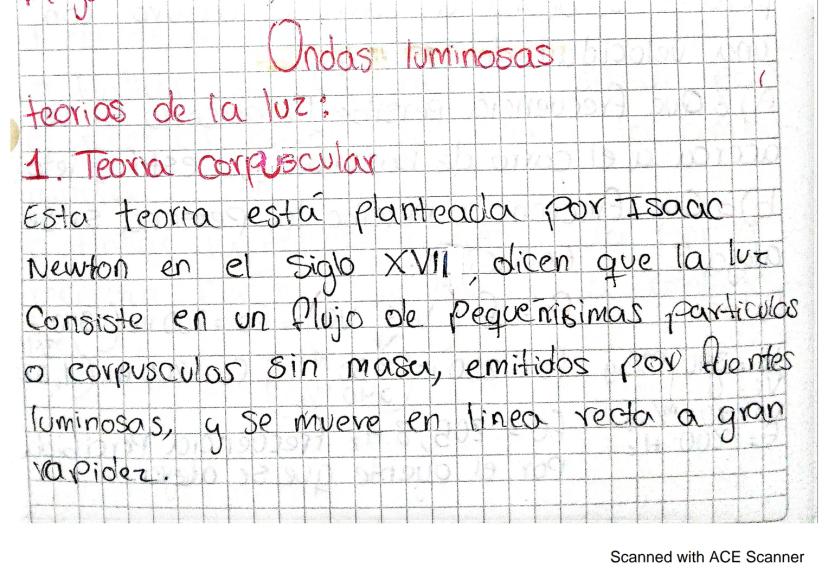 Ondas luminosas
teorias de la luz:
1. Teoria corpuscular
Esta teorra está planteada por Isaac
Newton en el siglo XVII, dicen que la luz
Consiste en un flujo de pequeñisimas particulas
o corpusculos sin masa, emitidos por fuentes
luminosas, y se mueve en linea recta a gran
rapidez.
Scanned with ACE Scanner